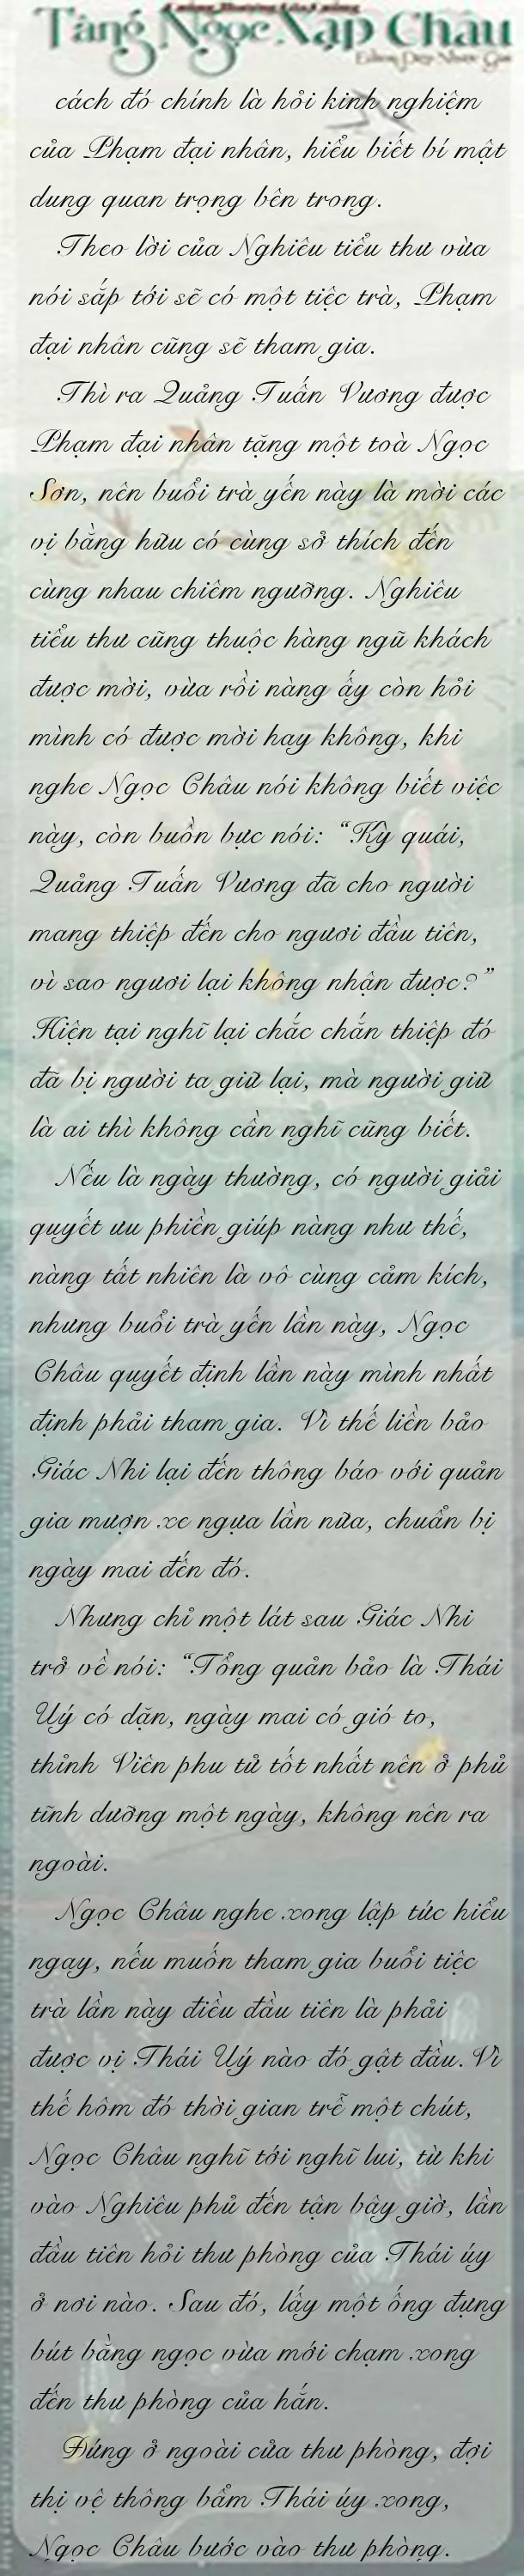 Tàng Ngọc Nạp Châu
cách đó chính là hỏi kinh nghiệm
của Phạm đại nhân, hiểu biết bí mật
dung quan trọng bên trong.
Theo lời của Nghiêu tiểu thư vừa
nói sắp tới sẽ có một tiệc trà, Phạm
đại nhân cũng sẽ tham gia.
Thì ra Quảng Tuấn Vương được
Phạm đại nhân tặng một toà Ngọc
Sơn, nên buổi trà yến này là mời các
vị bằng hữu có cùng sở thích đến
cùng nhau chiêm ngưỡng. Nghiêu
tiểu thư cũng thuộc hàng ngũ khách
được mời, vừa rồi nàng ấy còn hỏi
mình có được mời hay không, khi
nghe Ngọc Châu nói không biết việc
này, còn buồn bực nói: “Kỳ quái,
Quảng Tuấn Vương đã cho người
mang thiệp đến cho ngươi đầu tiên,
vì sao ngươi lại không nhận được?”
Hiện tại nghĩ lại chắc chắn thiệp đó
đã bị người ta giữ lại, mà người giữ
là ai thì không cần nghĩ cũng biết.
Nếu là ngày thường, có người giải
quyết ưu phiền giúp nàng như thế,
nàng tất nhiên là vô cùng cảm kích,
nhưng buổi trà yến lần này, Ngọc
Châu quyết định lần này mình nhất
định phải tham gia. Vì thế liền bảo
Giác Nhi lại đến thông báo với quản
gia mượn xe ngựa lần nữa, chuẩn bị
ngày mai đến đó.
Nhưng chỉ một lát sau Giác Nhi
trở về nói: “Tổng quản bảo là Thái
Uý có dặn, ngày mai có gió to,
thỉnh Viên phu tử tốt nhất nên ở phủ
tĩnh dưỡng một ngày, không nên ra
ngoài.
Ngọc Châu nghe xong lập tức hiểu
ngay, nếu muốn tham gia buổi tiệc
trà lần này điều đầu tiên là phải
được vị Thái Uý nào đó gật đầu. Vì
thế hôm đó thời gian trễ một chút,
Ngọc Châu nghĩ tới nghĩ lui, từ khi
vào Nghiêu phủ đến tận bây giờ, lần
đầu tiên hỏi thư phòng của Thái úy
ở nơi nào. Sau đó, lấy một ống đựng
bút bằng ngọc vừa mới chạm xong
đến thư phòng của hắn.
Đứng ở ngoài cửa thư phòng, đợi
thị vệ thông bẩm Thái úy xong,
Ngọc Châu bước vào thư phòng.